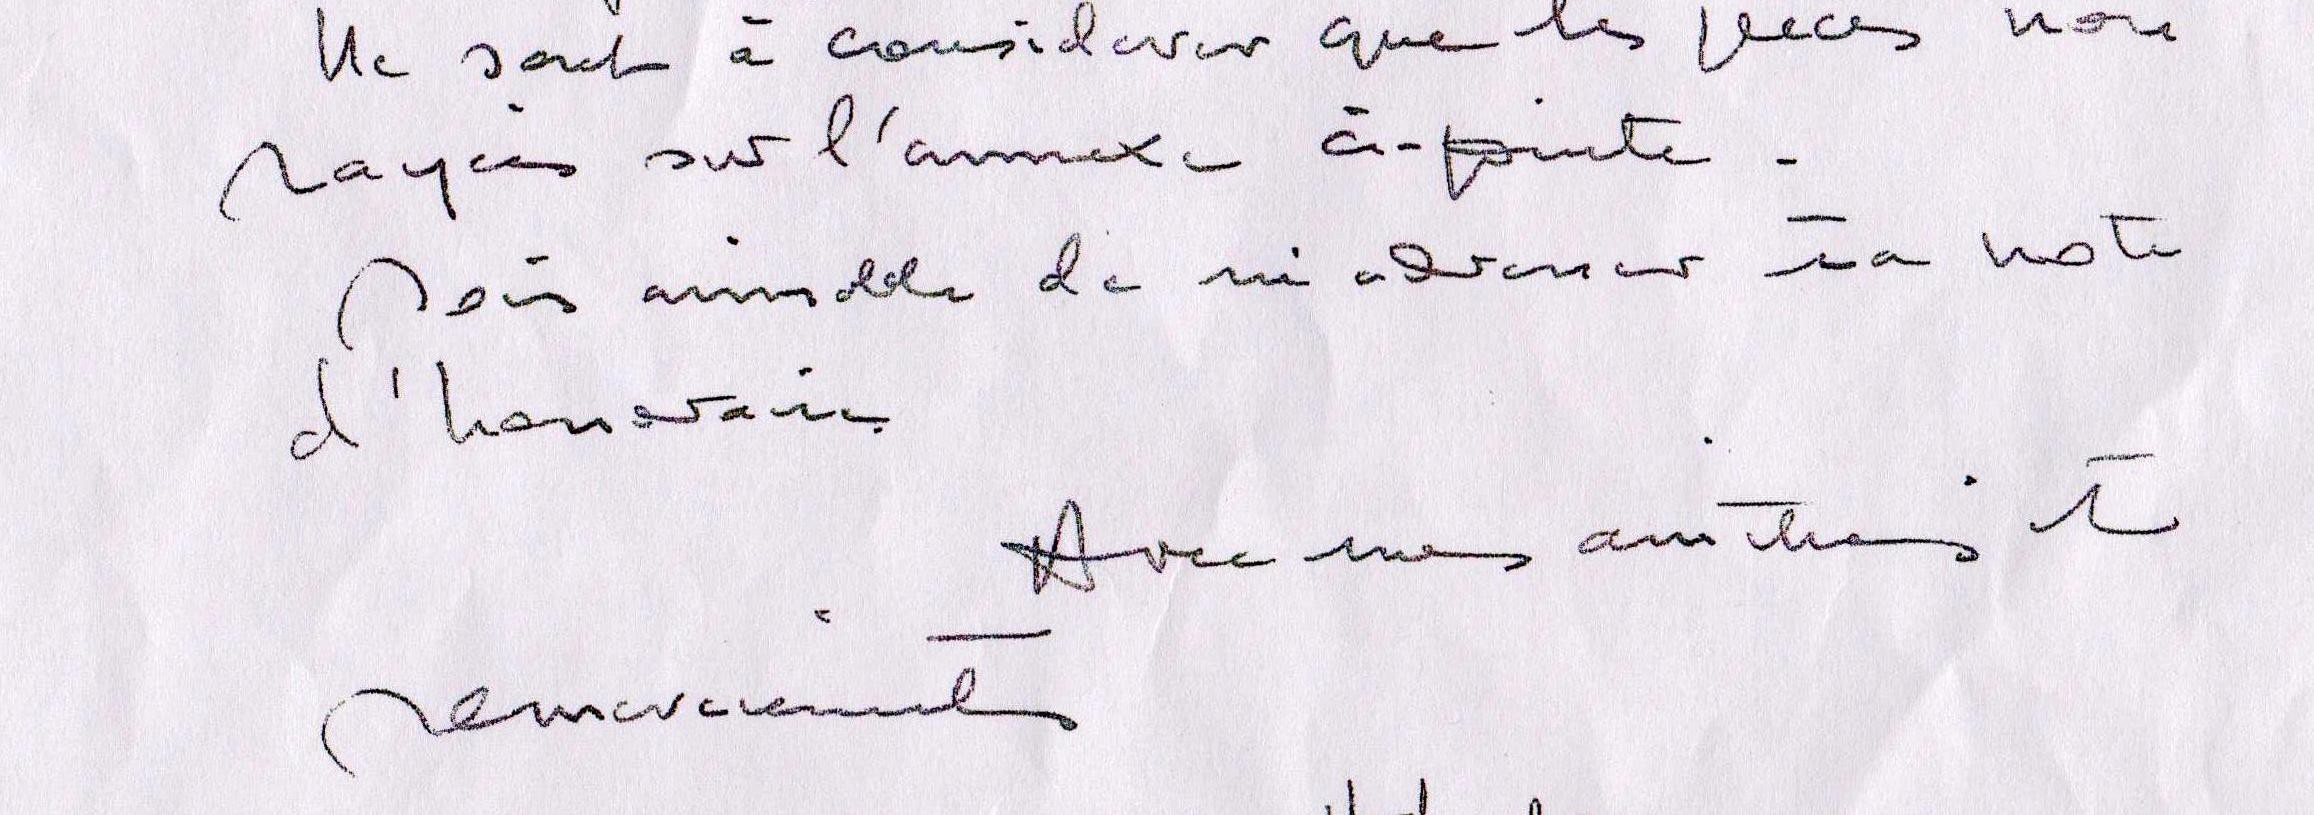 Ne sont à considérer que les pièces non
rayées sur l'annexe ci-jointe.
Sois aimable de m'adresser ta note
d'honoraires.
Avec mes amitiés et
remerciements